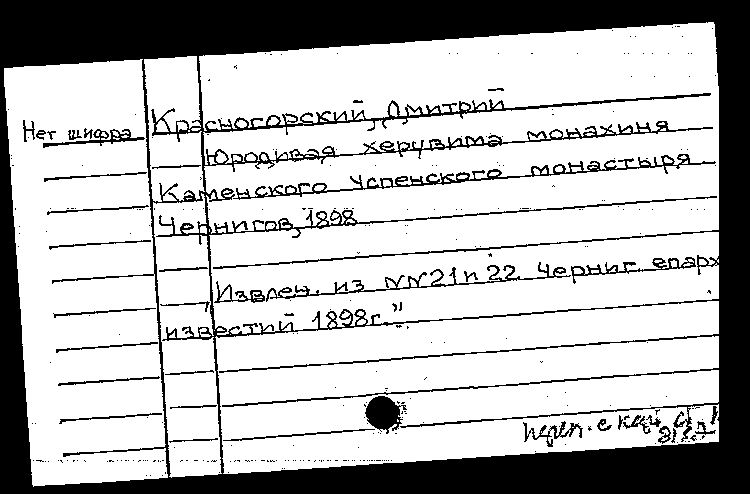 Нет шифра
Красногорский, Дмитрий
Юродивая херувима монахиня
Каменского Успенского монастыря
Чернигов, 1898
„Извлен. из NN 21 и 22. Черниг. епарх
известий 1898г."